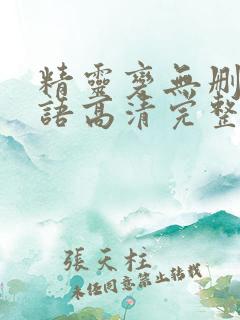 精靈變無刪
語高清完整
張天柱
未經同意禁止轉載